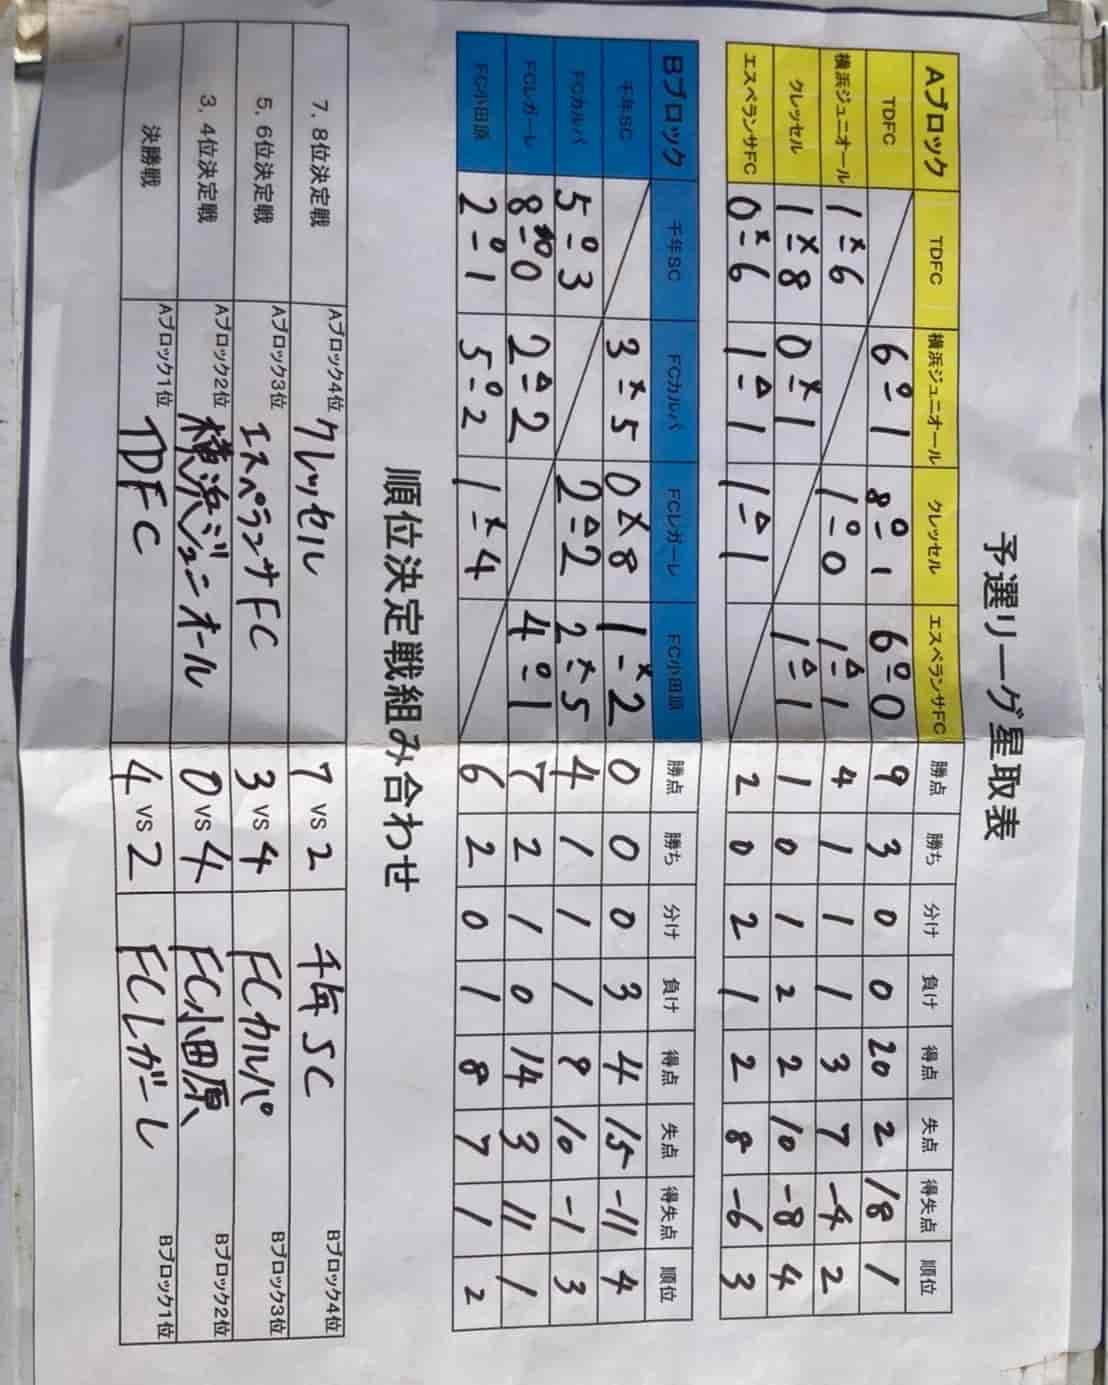 予選リーグ星取表
Aブロック TDFC 横浜ジュニオール クレッセル エスペランサFC 勝点 勝ち 分け 負け 得点 失点 得失点 順位
TDFC 6○1 8○1 6○0 9 3 0 0 20 2 18 1
横浜ジュニオール 1×6 1○0 1△1 4 1 1 1 3 7 -4 2
クレッセル 1×8 0×1 1△1 1 0 1 2 2 10 -8 4
エスペランサFC 0×6 1△1 1△1 2 0 2 1 2 8 -6 3
Bブロック 千年SC FCカルパ FCレガーレ FC小田原 勝点 勝ち 分け 負け 得点 失点 得失点 順位
千年SC 3×5 0×8 1×2 0 0 0 3 4 15 -11 4
FCカルパ 5○3 2△2 2×5 4 1 1 1 9 10 -1 3
FCレガーレ 8○0 2△2 4○1 7 2 1 0 14 3 11 1
FC小田原 2○1 5○2 1×4 6 2 0 1 8 7 1 2
順位決定戦組み合わせ
7, 8位決定戦 Aブロック4位 クレッセル 7 vs 2 千年SC Bブロック4位
5, 6位決定戦 Aブロック3位 エスペランサFC 3 vs 4 FCカルパ Bブロック3位
3, 4位決定戦 Aブロック2位 横浜ジュニオール 0 vs 4 FC小田原 Bブロック2位
決勝戦 Aブロック1位 TDFC 4 vs 2 FCレガーレ Bブロック1位